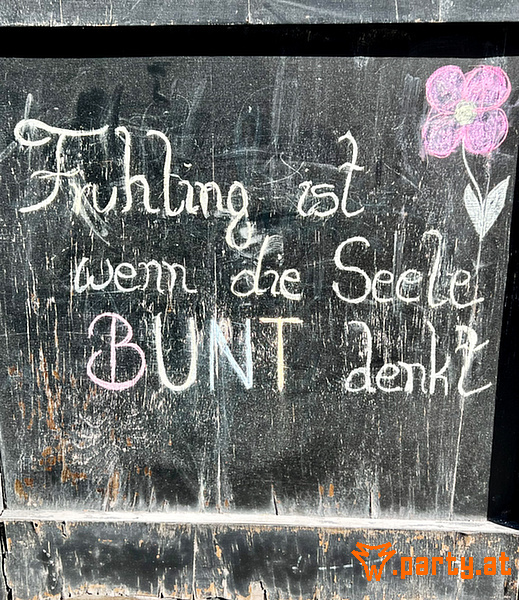 Fruhling ist
wenn die Seele
BUNT denkt
W.party.at